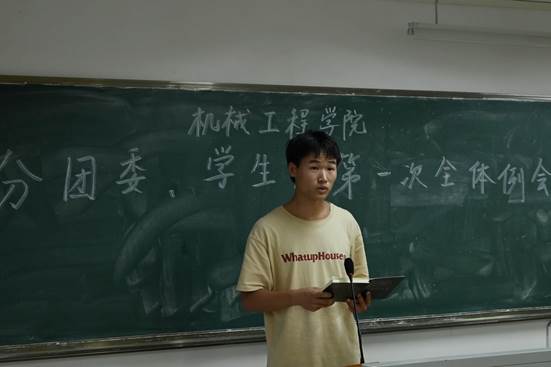 机械工程学院
分团委、学生 第一次全体例会
WhatupHouse